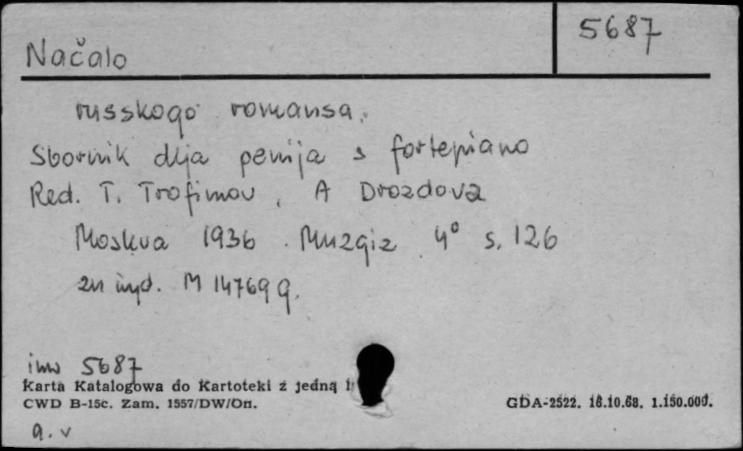 5687
Načalo
russkogo romansa.
Sbornik dlja penija s fortepiano
Red. T. Trofimov, A Drozdova
Moskva 1936. Muzgiz 4° s. 126
zn wyd. M 14769 g.
inw 5687
Karta Katalogowa do Kartoteki z jedną
CWD B-15c. Zam. 1557/DW/On.
GDA-2522. 16.10.68. 1.150.000.
a. v